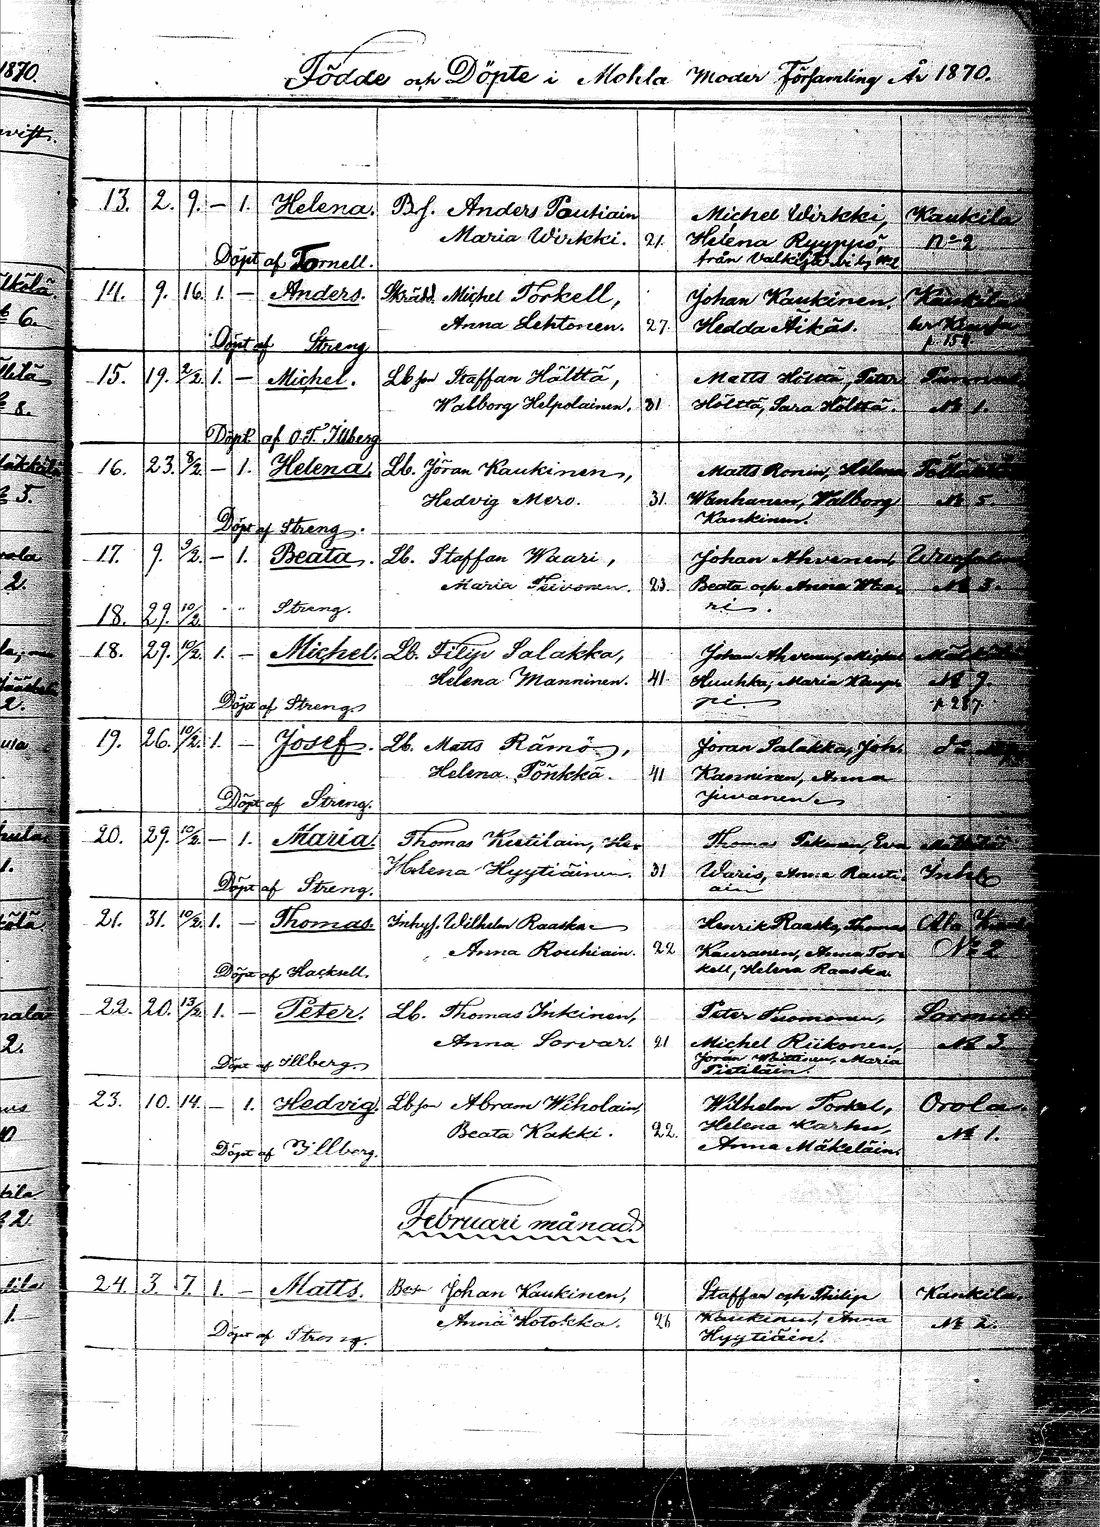 Födde och Döpte i Mohla Moder Församling År 1870.
13. 2. 9. – 1. Helena. Bf. Anders Pautiain Michel Wirkki, Kaukila
Maria Wirkki. 21. Helena Ryyppö, No 2
Döpt af Tornell. från
14. 9. 16. 1. – Anders. Skrädd. Michel Torkell, Johan Kaukinen. Kaukila
Anna Lehtonen. 27. Hedda Äikäs.
Döpt af Streng
15. 19. 2/2. 1. – Michel. Lb son Staffan Hölttä, Matts Hölttä, Peter
Walborg Helpolainen. 31 Hölttä, Sara Hölttä. No 1.
Döpt af O.T. Illberg
16. 23. 8/2. – 1. Helena. Lb. Jöran Kaukinen, Matts Ronin, Helena
Hedvig Mero. 31. Wanhanen, Walborg No 5
Döpt af Streng. Kaukinen.
17. 9. 9/2. – 1. Beata. Lb. Staffan Waari, Johan Ahvenen,
Maria Teivonen. 23. Beata och Anna Waa- No 3.
18. 29. 10/2. Streng. ri.
18. 29. 10/2. 1. – Michel. Lb. Filip Salakka, Johan Ahvenen, Michel
Helena Manninen. 41. Huuhka, Maria Kaup- No 9.
Döpt af Streng pi. p 287
19. 26. 10/2. 1. – Josef. Lb. Matts Rämö, Jöran Salakka, Joh.
Helena Pönkkä. 41 Kanninen, Anna
Döpt af Streng. Juvanen
20. 29. 10/2. – 1. Maria. Thomas Kistilain, Thomas Eva
Helena Hyytiäinen. 31 Waris, Anna Rauti- Inhb
Döpt af Streng. ain
21. 31. 10/2. 1. – Thomas. Inhys. Wilhelm Raaska Henrik Raaska, Thomas
Anna Rouhiain. 22 Kauranen, Anna Tor- No 2
Döpt af Hacksell. kell, Helena Raaska.
22. 20. 13/2. 1. – Peter. Lb. Thomas Inkinen, Peter Tuomonen,
Anna Sorvar. 21 Michel Riikonen, No 3.
Döpt af Illberg Maria
Pistiläin.
23. 10. 14. – 1. Hedvig. Lb son Abram Wiholain, Wilhelm Torkel, Orola.
Beata Kakki. 22. Helena Karhu, No 1.
Döpt af Illberg. Anna Mäkeläin.
Februari månad.
24. 3. 7. 1. – Matts. Johan Kaukinen, Staffan och Philip Kaukila.
Anna Hotokka. 26 Kaukinen, Anna No 2.
Döpt af Streng. Hyytiäin.